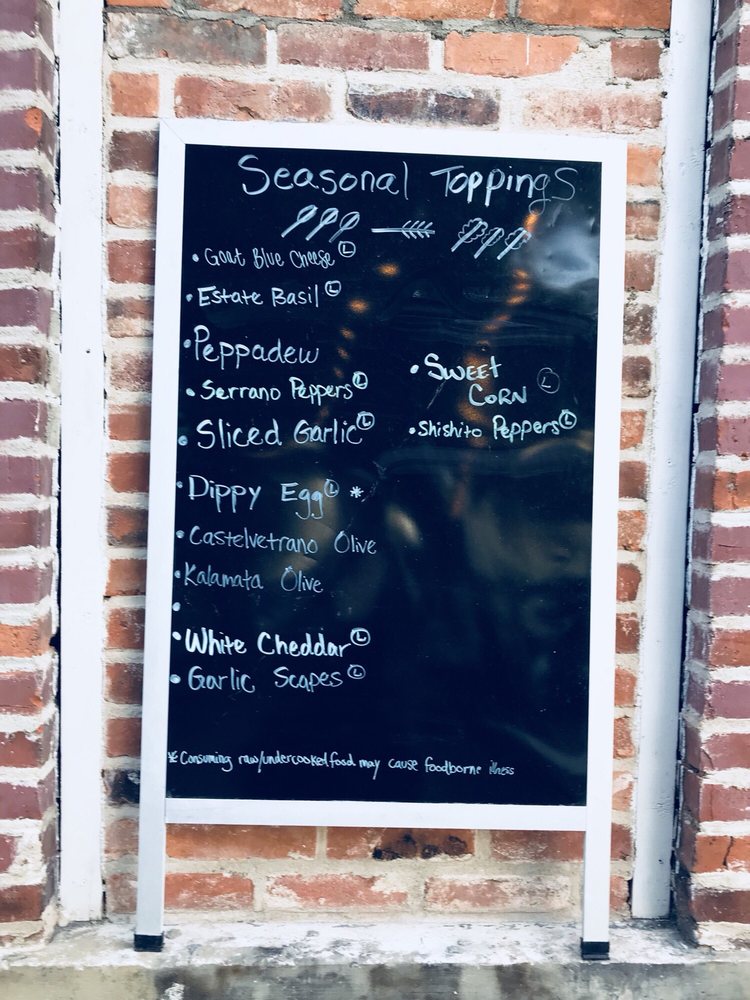 Seasonal Toppings
• Goat Blue Cheese Ⓛ
• Estate Basil Ⓛ
• Peppadew
• Serrano Peppers Ⓛ
• Sliced Garlic Ⓛ
• Dippy Egg Ⓛ *
• Castelvetrano Olive
• Kalamata Olive
•
• White Cheddar Ⓛ
• Garlic Scapes Ⓛ
• Sweet
Corn Ⓛ
• Shishito Peppers Ⓛ
* Consuming raw/undercooked food may cause foodborne illness